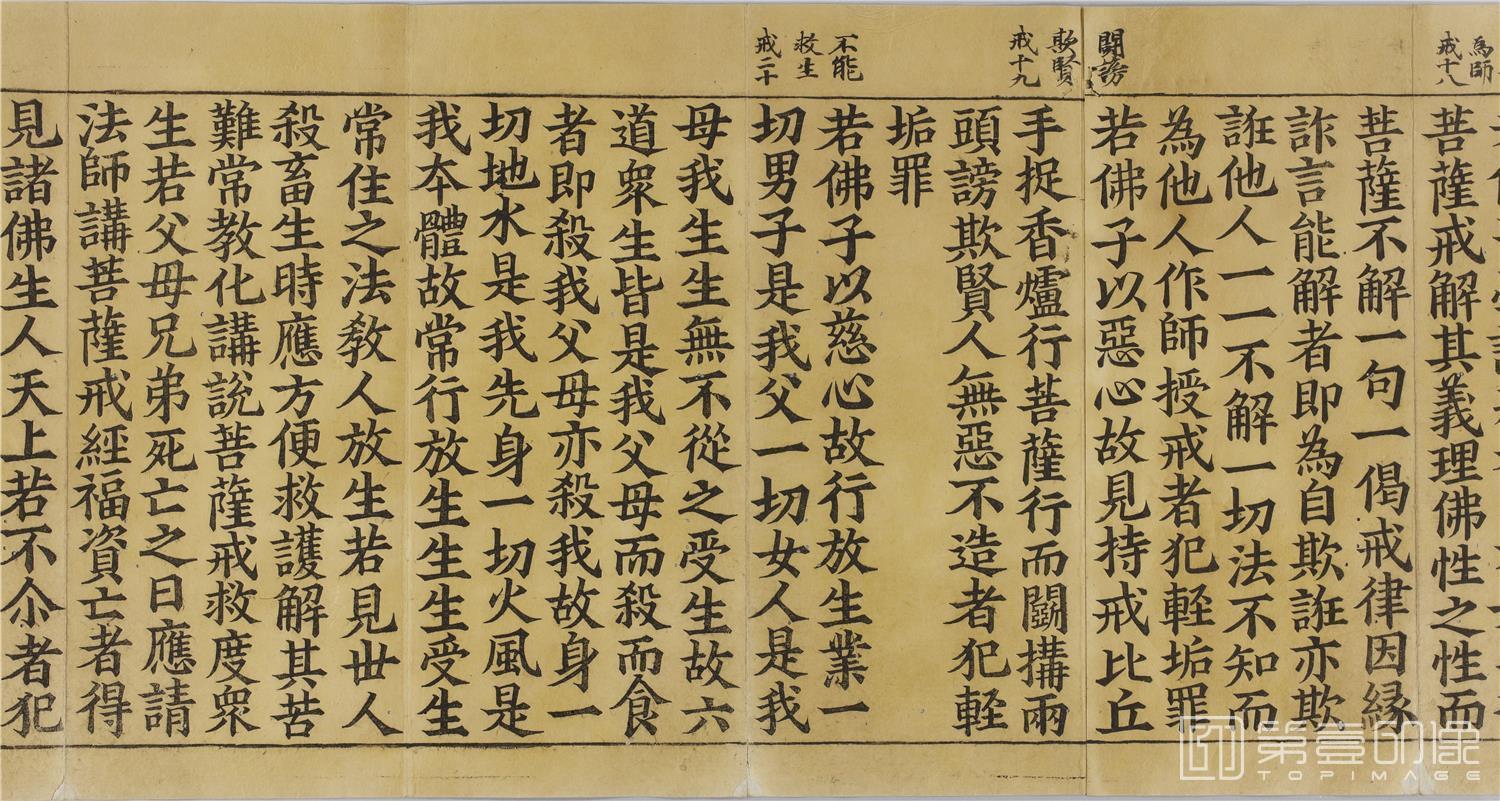 為師
戒十八
菩薩戒解其義理佛性之性而
菩薩不解一句一偈戒律因縁
詐言能解者即為自欺誑亦欺
誑他人一一不解一切法不知而
為他人作師授戒者犯軽垢罪
鬪謗
欺賢
戒十九
若佛子以惡心故見持戒比丘
手捉香爐行菩薩行而鬪搆兩
頭謗欺賢人無惡不造者犯軽
垢罪
不能
救生
戒二十
若佛子以慈心故行放生業一
切男子是我父一切女人是我
母我生生無不從之受生故六
道衆生皆是我父母而殺而食
者即殺我父母亦殺我故身一
切地水是我先身一切火風是
我夲體故常行放生生生受生
常住之法教人放生若見世人
殺畜生時應方便救護解其苦
難常教化講說菩薩戒救度衆
生若父母兄弟死亡之日應請
法師講菩薩戒經福資亡者得
見諸佛生人天上若不尒者犯
第壹印像
TOPIMAGE